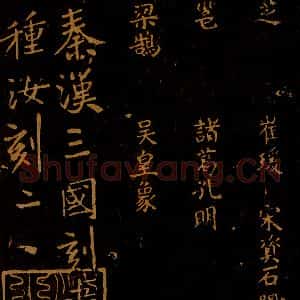 芝 崔瑗 宋
邕 諸葛孔明
梁鵠 吳皇象
秦漢三國刻
種汝刻二
Shufawang.CN